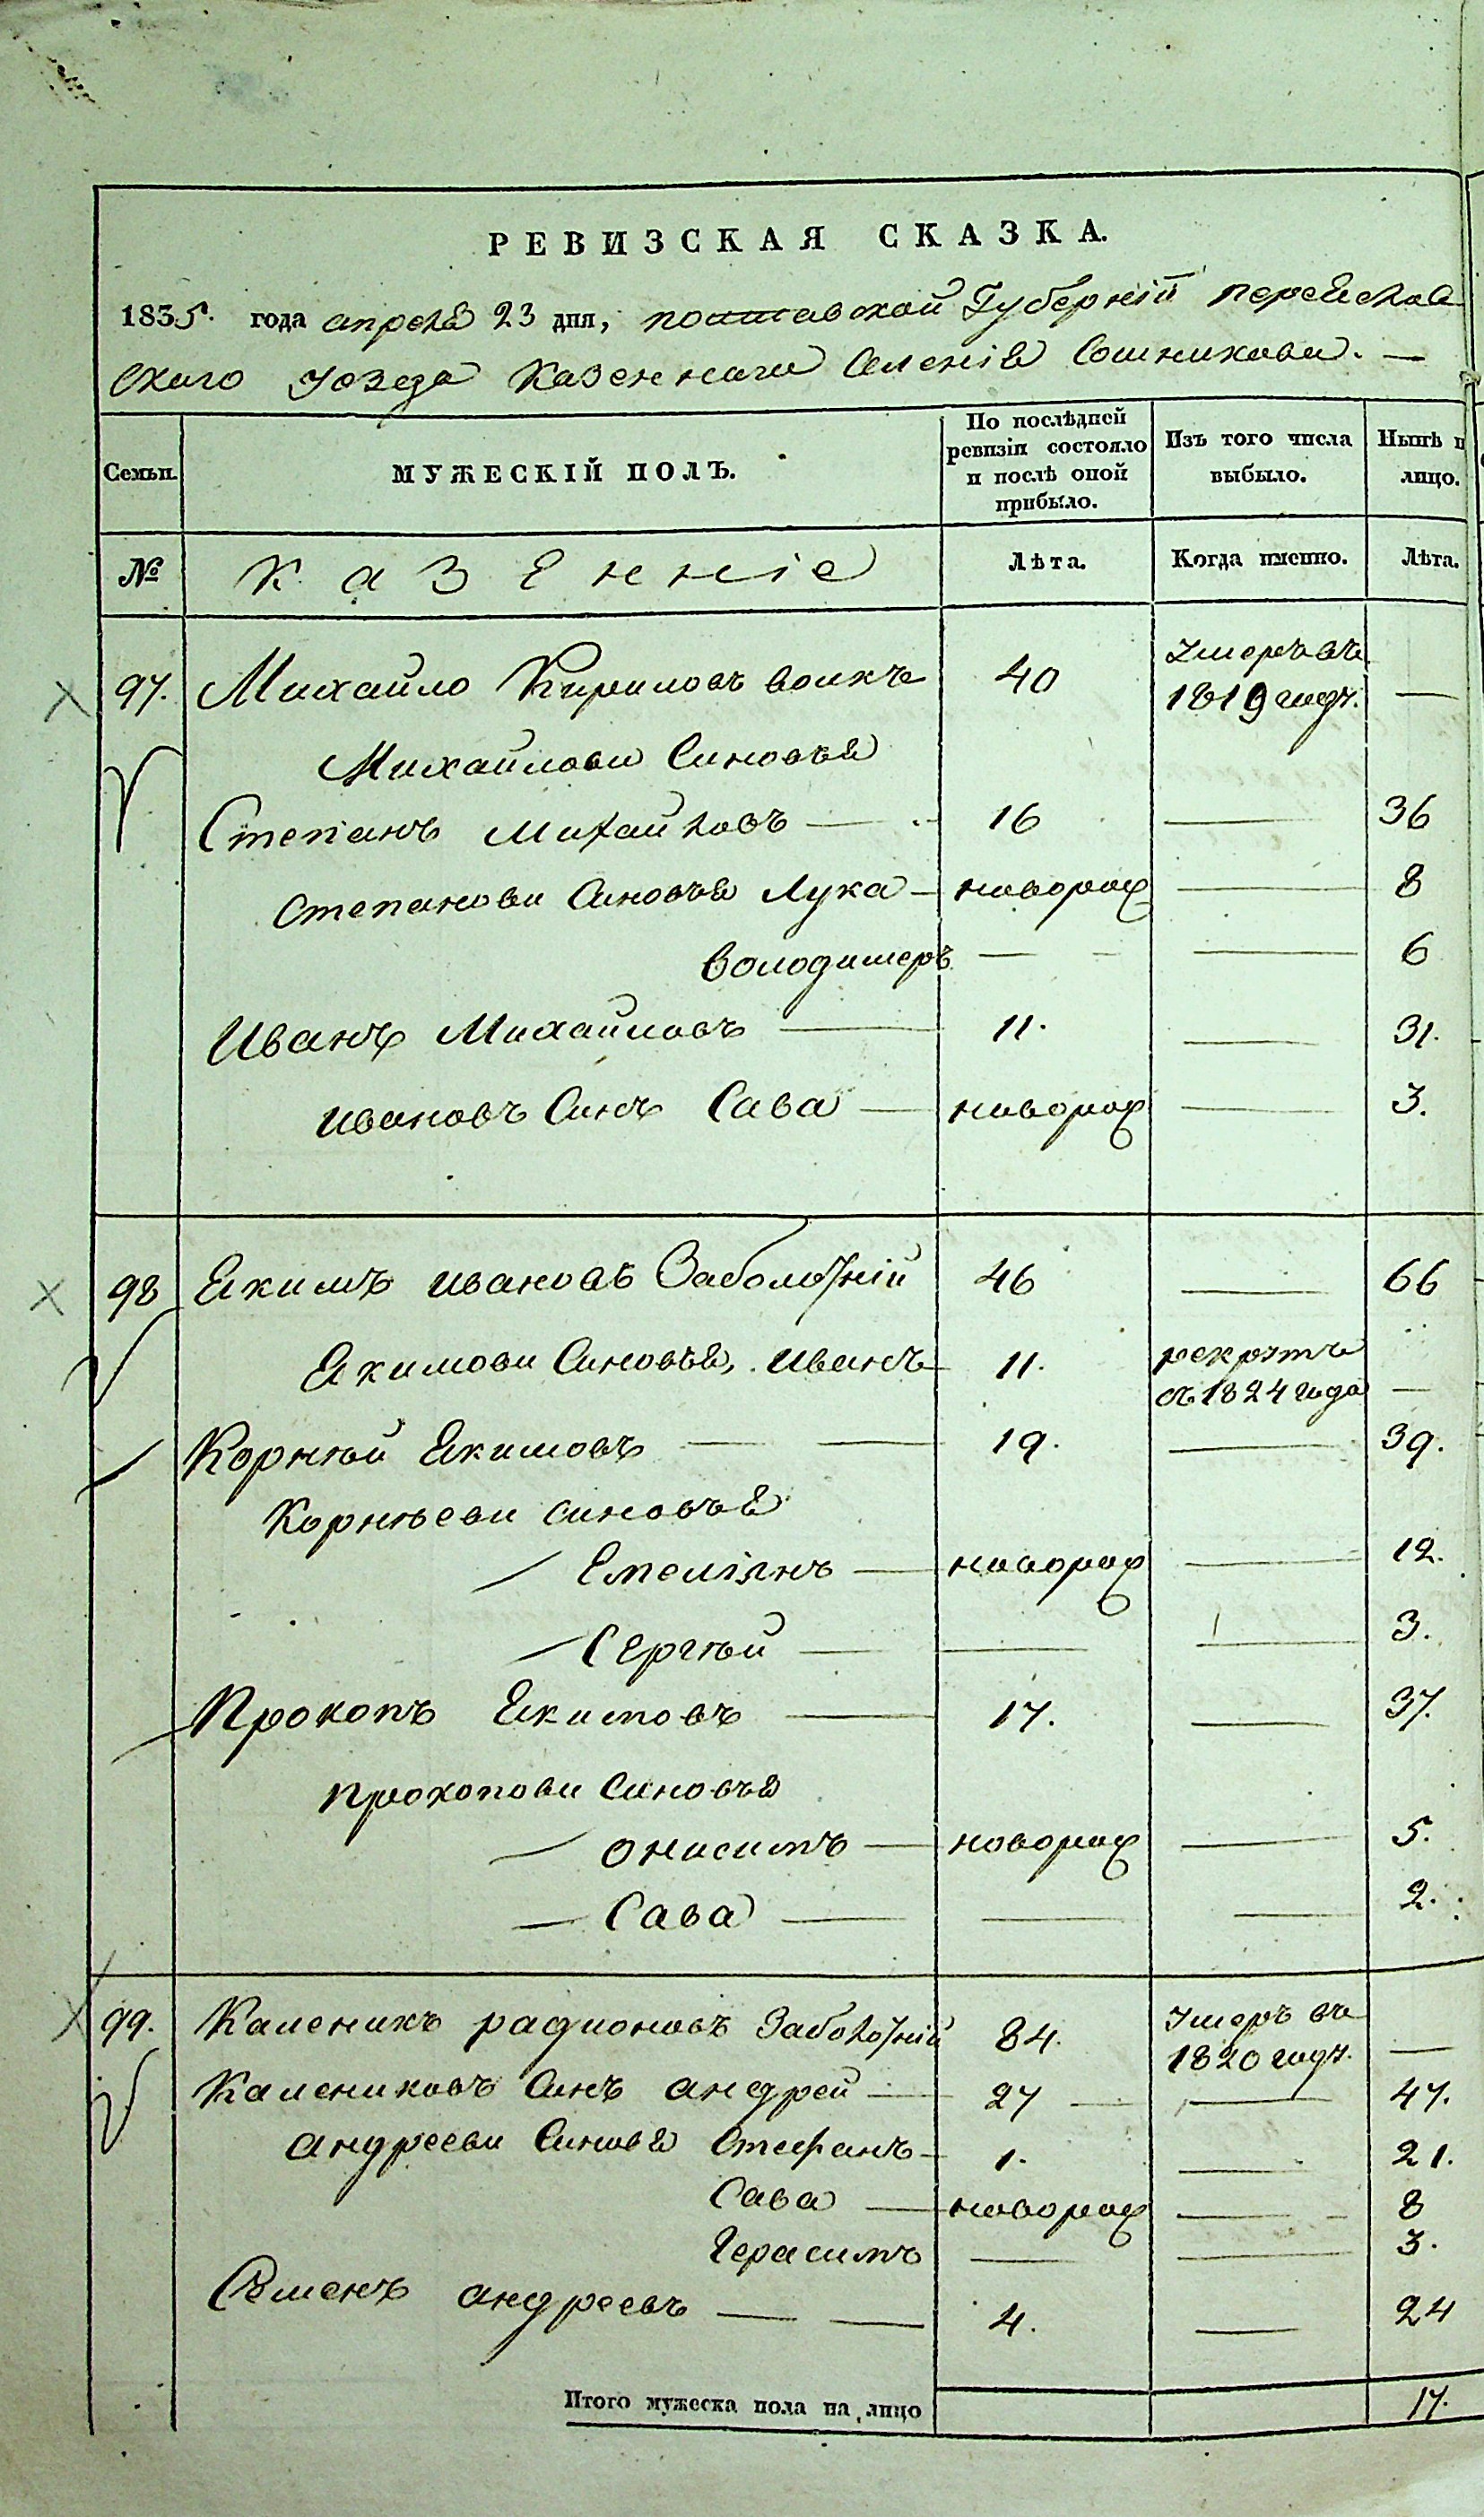 РЕВИЗСКАЯ СКАЗКА.
1835. года апреля 23 дня, полтавской Губерніи переяслав
скаго уезда Казеннаго Селенія Сошникова. —
Семьи.
МУЖЕСКІЙ ПОЛЪ.
По послѣдней ревизіи состояло и послѣ оной прибыло.
Изъ того числа выбыло.
Нынѣ н лицо.
№ Казенніе Лѣта. Когда именно. Лѣта.
97. Михайло Кириловъ вовкъ 40 умеръ въ 1819 году. —
Михайлови Синовья
Степанъ Михайловъ — 16 — 36
Степанови Синовья Лука — новорож — 8
Володимеръ — — — 6
Иванъ Михайловъ — 11. — 31.
Ивановъ Синъ Сава — новорож — 3.
98 Екимъ Ивановъ Заболотній 46 — 66
Екимови Синовья, Иванъ — 11. рекрутъ съ 1824 года —
Корнѣй Екимовъ — — 19. — 39.
Корнѣеви синовья
Емеліянъ — новорож — 12.
Сергѣй — — — 3.
Прокопъ Екимовъ — 17. — 37.
Прокопови Синовья
Онисимъ — новорож — 5.
Сава — — — 2.
99. Каленикъ радионовъ Заболотній 84. умеръ въ 1820 году. —
Калениковъ Синъ андрей — 27 — — 47.
андрееви Синовя Стефанъ — 1. — 21.
Сава — новорож — 8
Герасимъ — — 3.
Семенъ андреевъ — — 4. — 24
Итого мужеска пола на лицо 17.